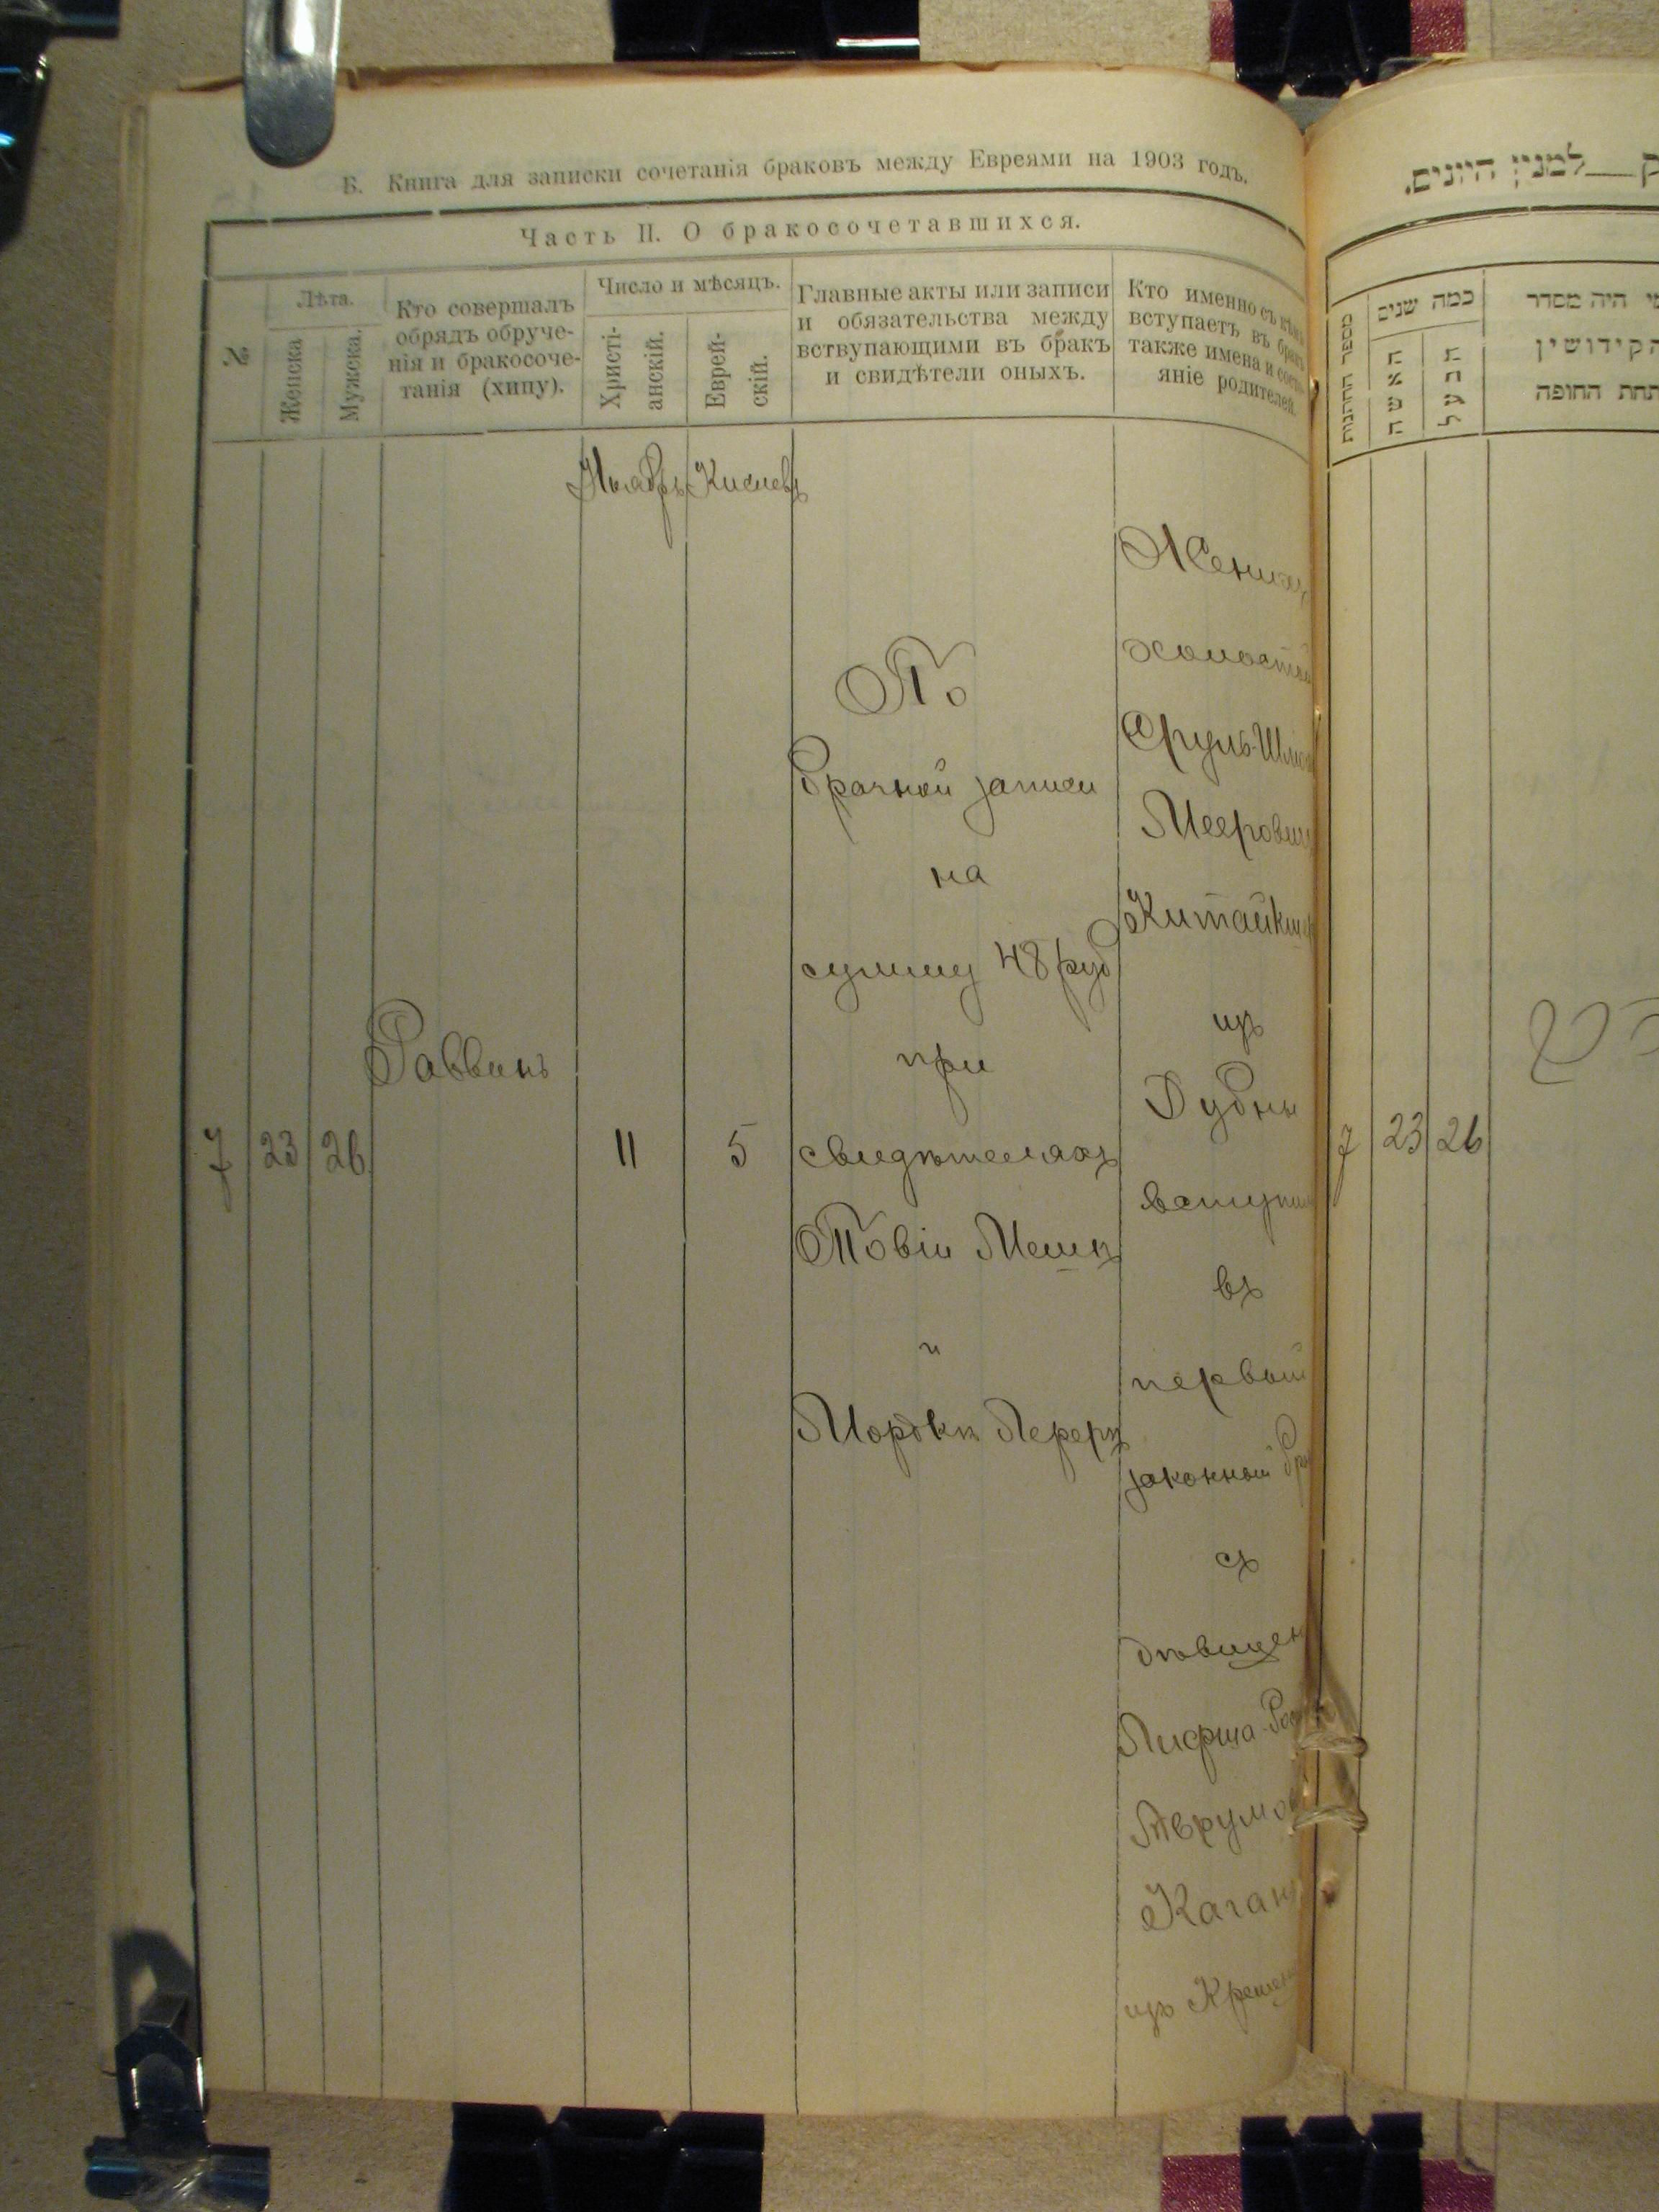 Б. Книга для записки сочетанія браковъ между Евреями на 1903 годъ.
Часть II. О бракосочетавшихся.
№
Лѣта.
Женска
Мужска.
Кто совершалъ
обрядъ обруче-
нія и бракосоче-
танія (хипу).
Число и мѣсяцъ.
Христі-
анскій.
Еврей-
скій.
Главные акты или записи
и обязательства между
вствупающими въ бракъ
и свидѣтели оныхъ.
Кто именно съ кѣмъ
вступаетъ въ бракъ
также имена и состо-
яніе родителей.
Ноябрь Кислевъ
7 23 26
Раввинъ
11 5
По
брачной записи
на
сумму 48 руб
при
свидѣтеляхъ
Товіи Мешъ
и
Мордки Лереръ
Женихъ
холостой
Сруль-Шлиом
Мееровичъ
Китайкш
изъ
Дубны
вступил
въ
первый
законный бра
съ
дѣвицею
Авrумов
Каганъ
изъ Кремен
למנין היונים.
מספר החתונות
כמה שנים
האשה
הבעל
מי היה מסדר
הקידושין
תחת החופה
7 23 26